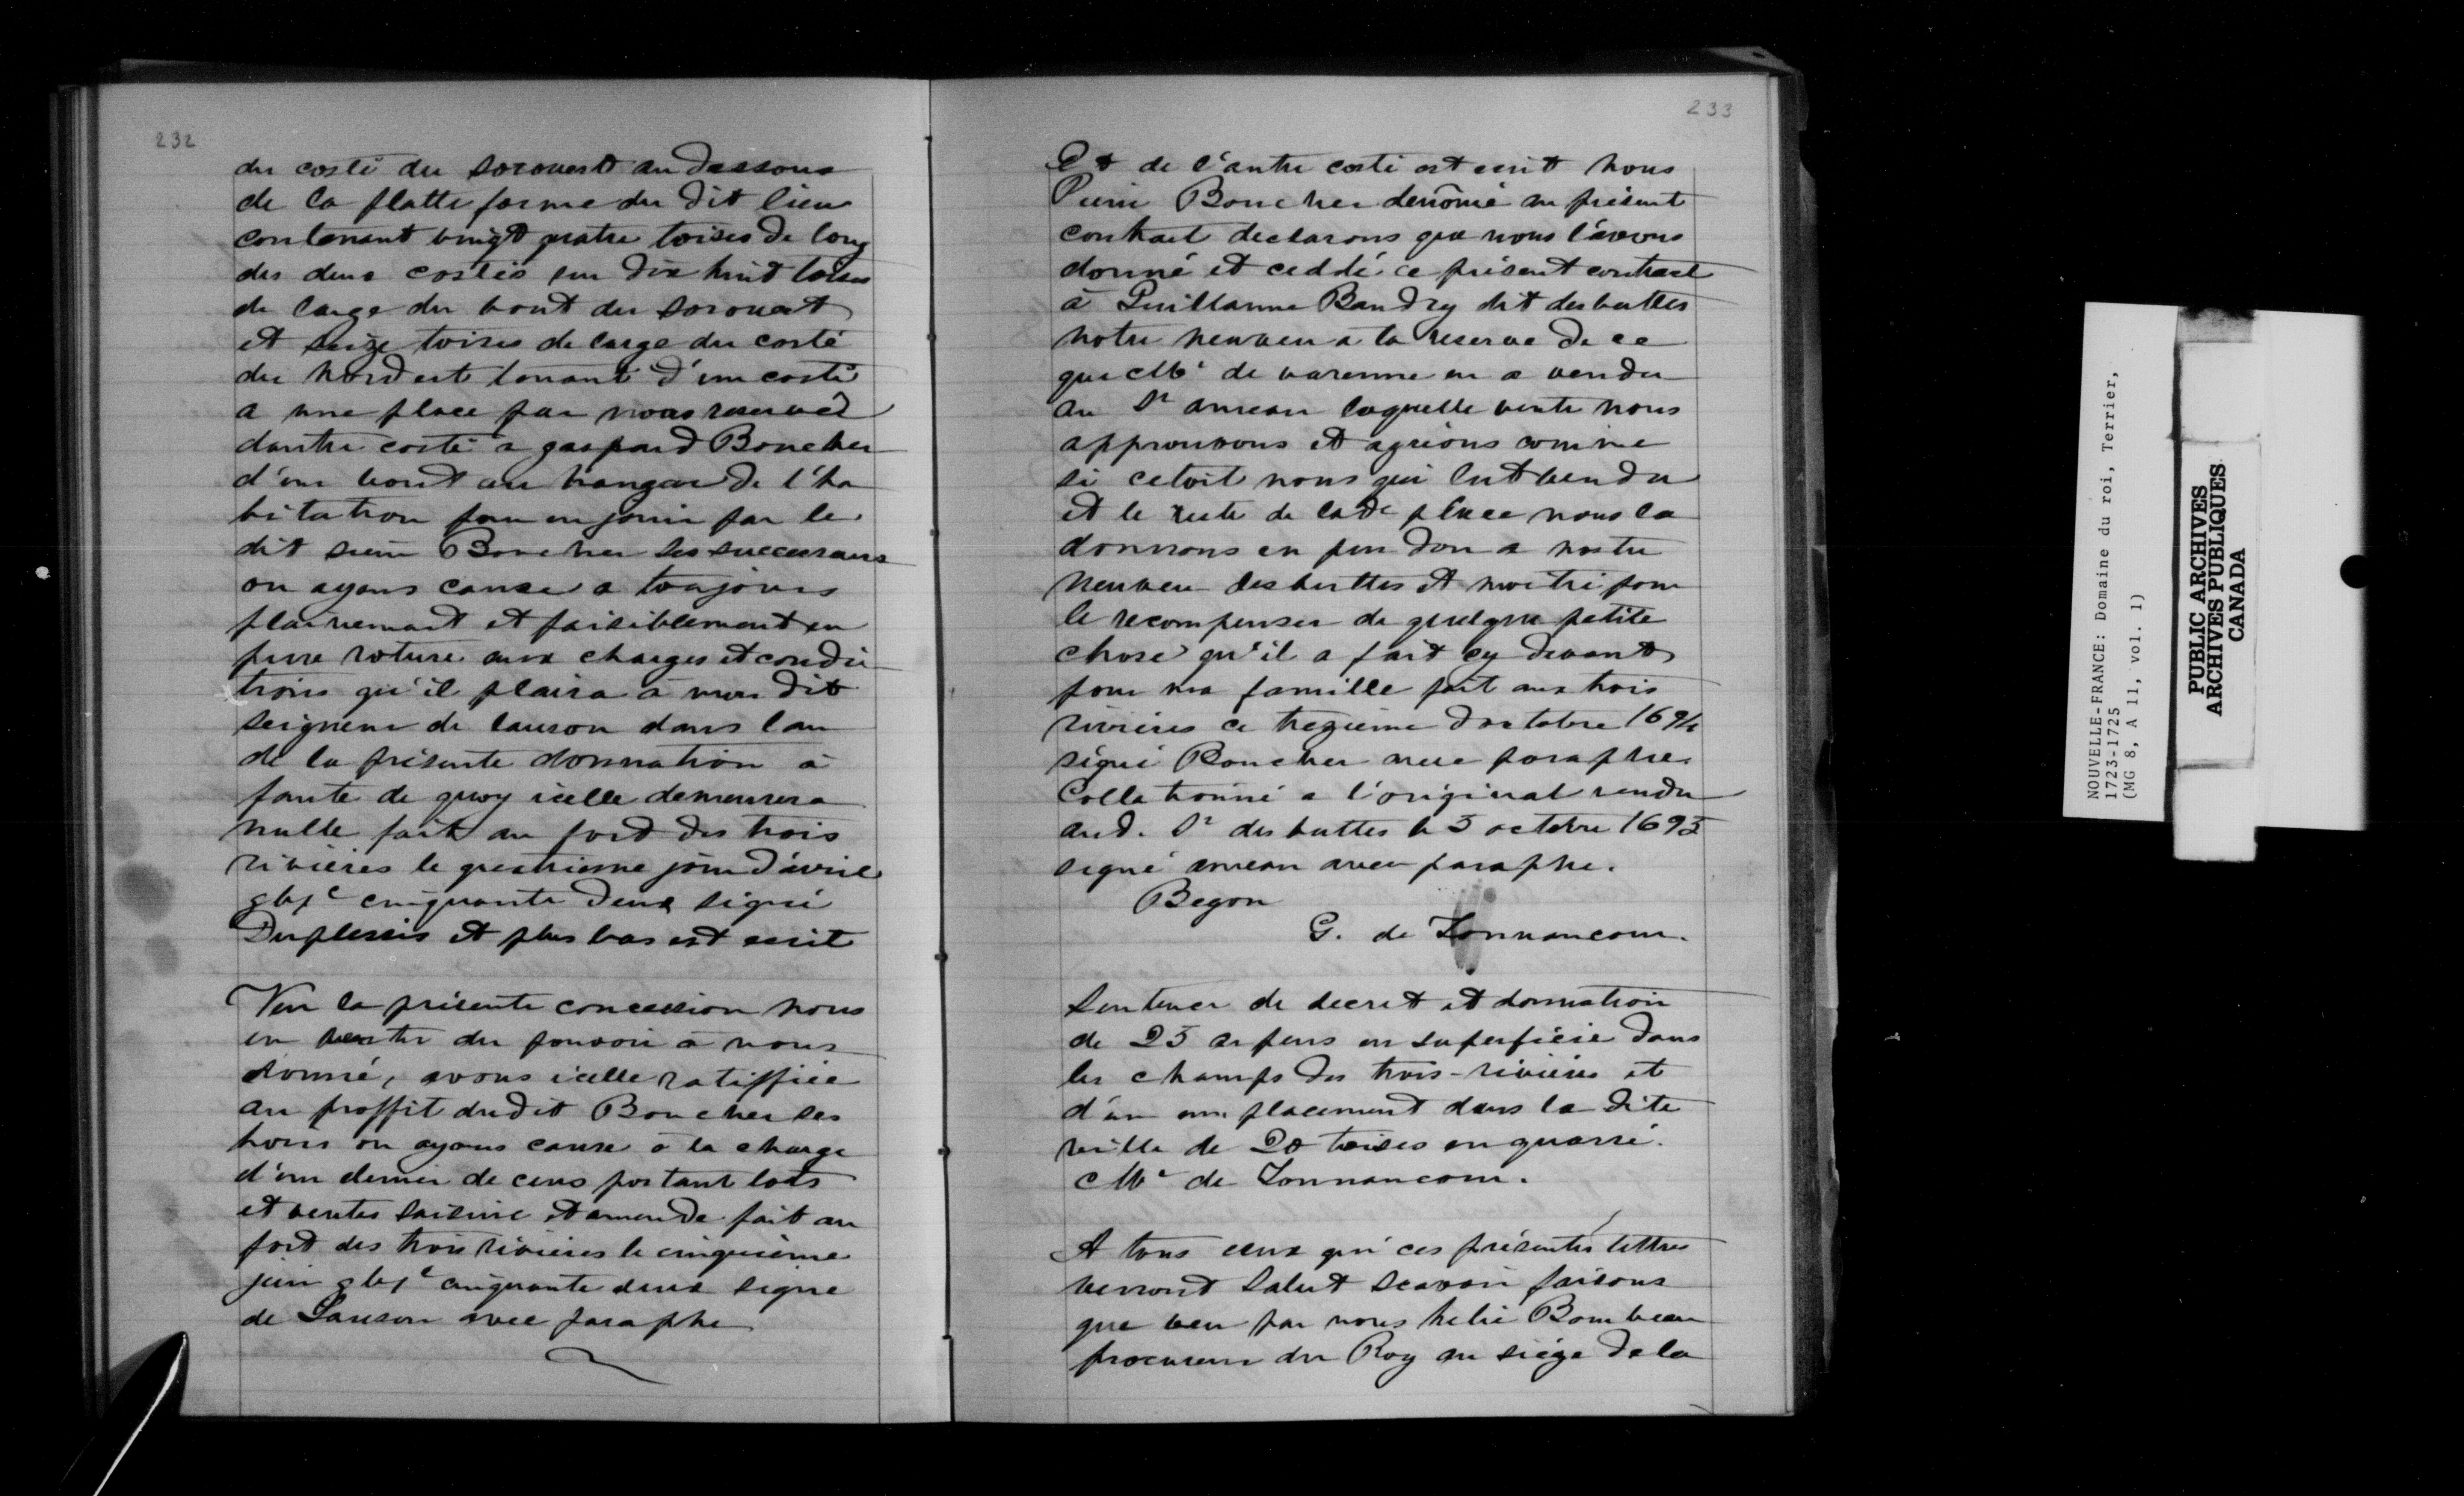 232
du costé du sorouest au dessous
de la platte forme du dit lieu
contenant vingt quatre toises de long
des deux costés sur dix huit toises
de large du bout du sorouest
et seize toises de large du costé
du Nordest tenant d'un costé
a une place par nous reservée
dautre costé a gaspard Boucher
d'un bout au hangar de l'ha
bitation pour en jouir par le
dit sieur Boucher ses successeurs
ou ayans cause a toujours
plainement et paisiblement en
pure roture aux charges et condi
tions qu'il plaira à mon dit
seigneur de lauson dans l'an
de la présente donnation à
faute de quoy icelle demeurera
nulle fait au fort des trois
rivières le quatrieme jour d'avril
gbxc cinquante deux signé
Duplessis et plus bas est escrit
Veu la présente concession nous
en vertu du pouvoir à nous
donné, avons icelle ratiffiée
au proffit dudit Boucher ses
hoirs ou ayans cause à la charge
d'un denier de cens portant lods
et ventes saisine et amende fait au
fort des trois rivieres le cinquième
juin gbxc cinquante deux signé
de Lauson avec paraphe
233
Et de l'autre costé est escrit nous
Pierre Boucher denomé au présent
contract declarons que nous l'avons
donné et ceddé ce présent contract
à Guillaume Baudry dit desbuttes
notre neuveu a la reserve de ce
que Mr de varenne en a vendu
au Sr ameau laquelle vente nous
approuvons et agréons comme
si cetoit nous qui l'ut vendu
et le reste de lade place nous la
donnons en pur don a nostre
neuveu desbuttes et moitié pour
le recompenser de quelque petite
chose qu'il a fait cy devant
pour ma famille fait aux trois
rivières ce trezieme d'octobre 1694
signé Boucher avec paraphe
Collationné a l'original rendu
aud. Sr desbuttes le 5 octobre 1695
signé ameau avec paraphe.
Begon
G. de Tonnancour.
Sentence de decret et donnation
de 25 arpens en superficie dans
les champs des trois-rivières et
d'un emplacement dans la dite
ville de 20 toises en quarré.
Mr de Tonnancour.
A tous ceux qui ces présentes lettres
verront salut scavoir faisons
que veu par nous helie Bourbeau
procureur du Roy au siége de la
NOUVELLE-FRANCE: Domaine du roi, Terrier,
1723-1725
(MG 8, A 11, vol. 1)
PUBLIC ARCHIVES
ARCHIVES PUBLIQUES
CANADA